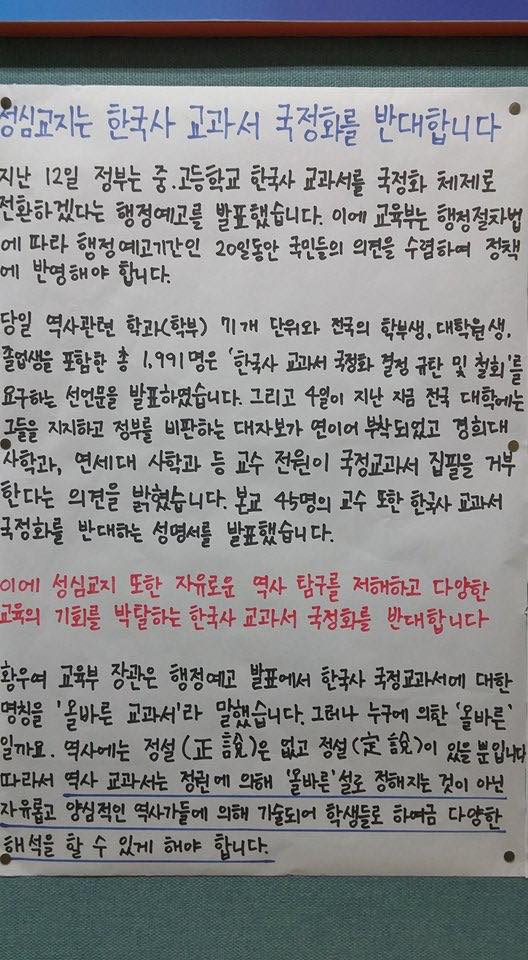 성심교지는 한국사 교과서 국정화를 반대합니다
지난 12일 정부는 중.고등학교 한국사 교과서를 국정화 체제로
전환하겠다는 행정예고를 발표했습니다. 이에 교육부는 행정절차법
에 따라 행정예고기간인 20일동안 국민들의 의견을 수렴하여 정책
에 반영해야 합니다.
당일 역사관련 학과(학부) 71개 단위와 전국의 학부생, 대학원생,
졸업생을 포함한 총 1,991명은 '한국사 교과서 국정화 결정 규탄 및 철회'를
요구하는 선언문을 발표하였습니다. 그리고 4일이 지난 지금 전국 대학에는
그들을 지지하고 정부를 비판하는 대자보가 연이어 부착되었고 경희대
사학과, 연세대 사학과 등 교수 전원이 국정교과서 집필을 거부
한다는 의견을 밝혔습니다. 본교 45명의 교수 또한 한국사 교과서
국정화를 반대하는 성명서를 발표했습니다.
이에 성심교지 또한 자유로운 역사 탐구를 저해하고 다양한
교육의 기회를 박탈하는 한국사 교과서 국정화를 반대합니다
황우여 교육부 장관은 행정예고 발표에서 한국사 국정교과서에 대한
명칭을 '올바른 교과서'라 말했습니다. 그러나 누구에 의한 '올바른'
일까요. 역사에는 정설(正說)은 없고 정설(定說)이 있을 뿐입니다
따라서 역사 교과서는 정권에 의해 '올바른'설로 정해지는 것이 아닌
자유롭고 양심적인 역사가들에 의해 기술되어 학생들로 하여금 다양한
해석을 할 수 있게 해야 합니다.